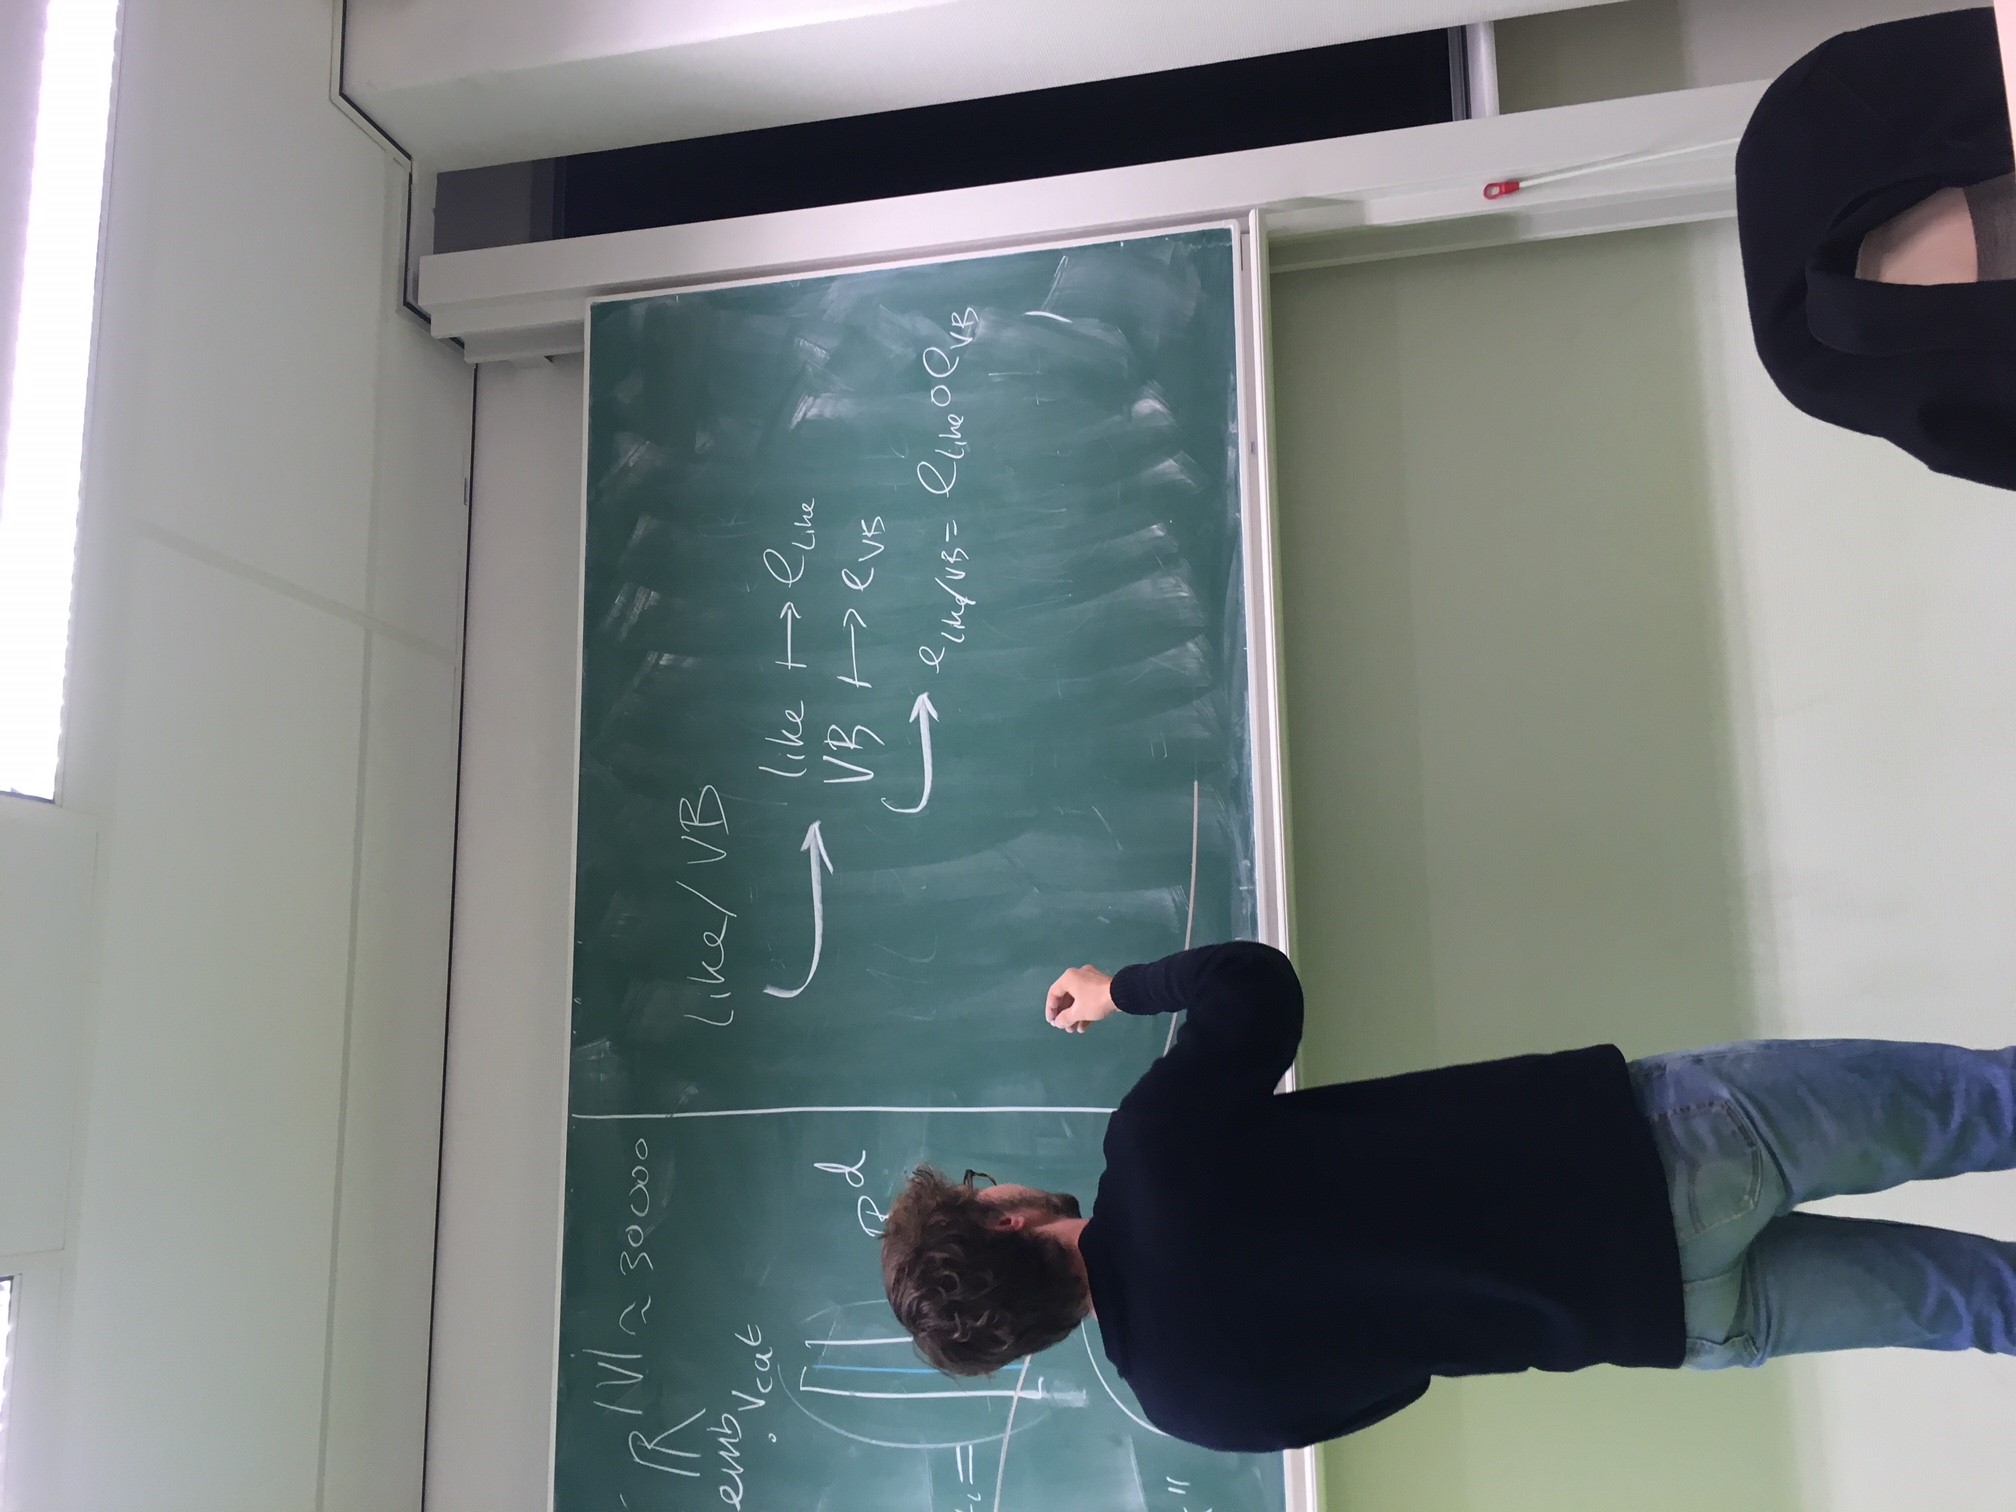 ℝ^|V| ≈ 30000
emb
v_cat
ℝ^d
=
"
Like/VB
like ↦ e_like
VB ↦ e_VB
e_like/VB = e_like ∘ e_VB